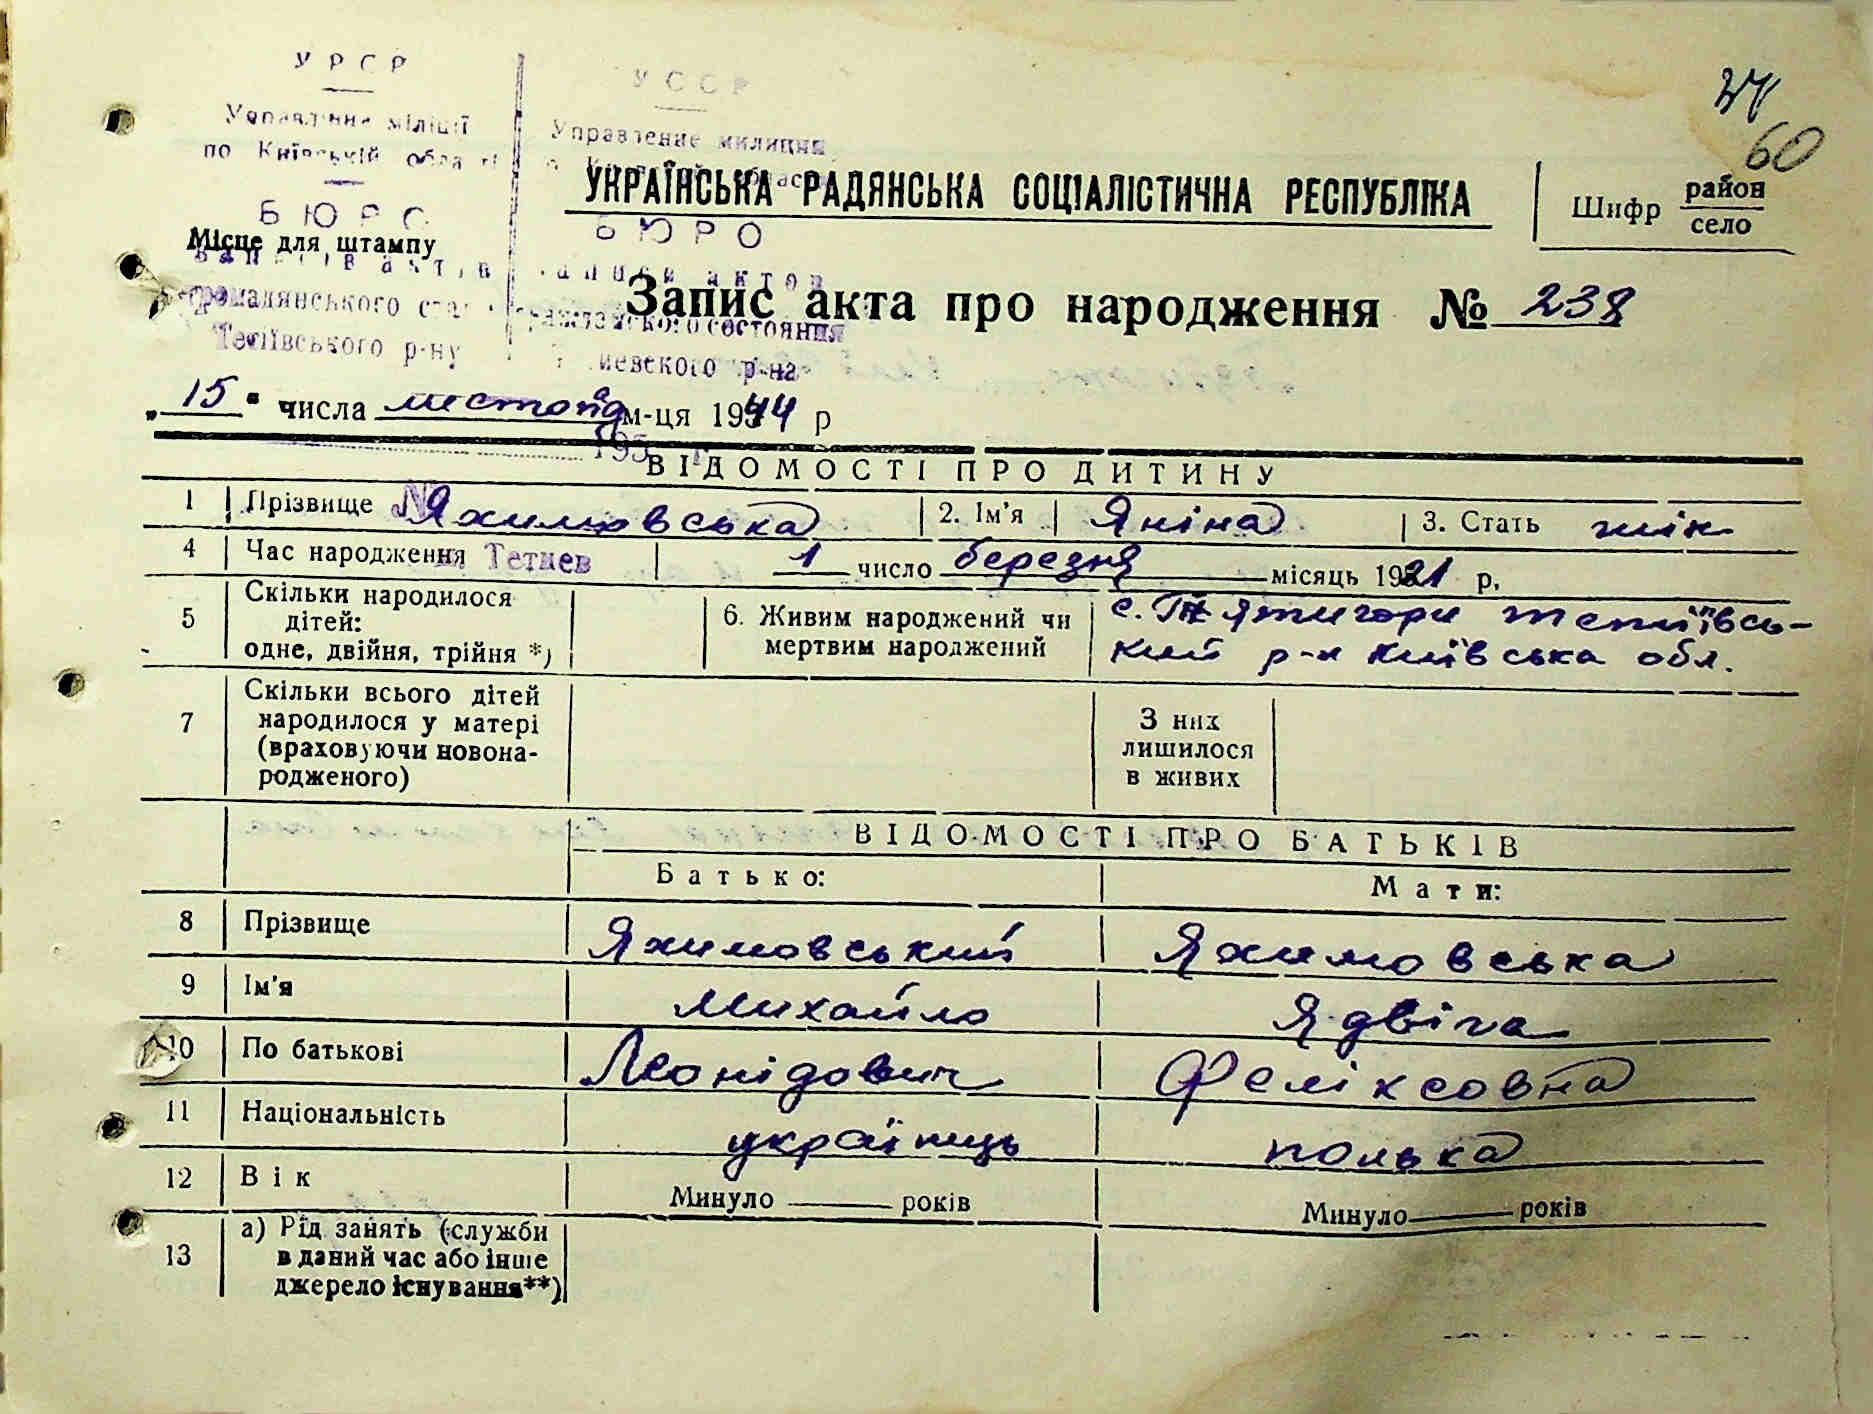 УРСР
Управління міліції
по Київській
БЮРО
громадянського
Тетіївського р-ну
УССР
Управление милиции
БЮРО
записи актов
гражданского состояния
р-на
195 г.
№
Тетиев
60
УКРАЇНСЬКА РАДЯНСЬКА СОЦІАЛІСТИЧНА РЕСПУБЛІКА
Шифр район
село
Місце для штампу
Запис акта про народження № 238
„15" числа листопад м-ця 1944 р
ВІДОМОСТІ ПРО ДИТИНУ
1 Прізвище Яхимовська 2. Ім'я Яніна 3. Стать жін
4 Час народження 1 число березня місяць 1921 р.
5 Скільки народилося
дітей:
одне, двійня, трійня *)
6. Живим народжений чи
мертвим народжений
с. П'ятигори тетіївсь-
кий р-н Київська обл.
7 Скільки всього дітей
народилося у матері
(враховуючи новона-
родженого)
З них
лишилося
в живих
ВІДОМОСТІ ПРО БАТЬКІВ
Батько: Мати:
8 Прізвище Яхимовський Яхимовська
9 Ім'я Михайло Ядвіга
10 По батькові Леонідович Феліксовна
11 Національність українець полька
12 Вік Минуло років Минуло років
13 а) Рід занять (служби
в даний час або інше
джерело існування**)